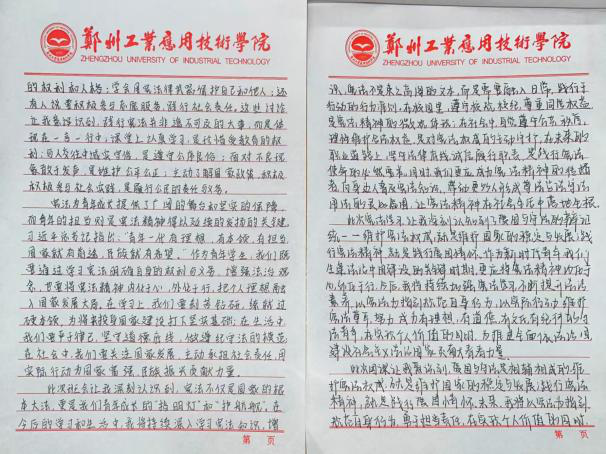 鄭州工業應用技術學院
ZHENGZHOU UNIVERSITY OF INDUSTRIAL TECHNOLOGY
的权利和人格；学会用宪法律武器保护自己和他人；还
有人说要积极参与志愿服务，践行社会责任。这些讨论
让我意识到，践行宪法并非遥不可及的大事，而是体
现在一言一行中；课堂上认真学习，是珍惜受教育的权
利；与人交往中诚实守信，是遵守公序良俗；面对不良现
象敢于发声，是维护公平正义；主动了解国家政策，积极
参与社会实践，是履行公民的责任义务。
宪法为青年成长提供了广阔的舞台和坚实的保障，
而青年的担当则是宪法精神得以延续和发扬的关键。
习近平总书记指出："青年一代有理想、有本领、有担当，
国家就有前途，民族就有希望。"作为青年学生，我们既
要通过学习宪法明确自身的权利与义务，增强法治观
念，也要将宪法精神内化于心、外化于行，把个人理想融
入国家发展大局。在学习上，我们要刻苦钻研，练就过
硬本领，为将来投身国家建设打下坚实基础；在生活中
我们要严于律己，坚守道德底线，做遵纪守法的模范；
在社会中，我们要关注国家发展，主动承担社会责任，用
实际行动为国家富强、民族振兴贡献力量。
此次班会让我深刻认识到，宪法不仅是国家的根
本大法，更是我们青年成长的"指明灯"和"护航舰"。在
今后的学习和生活中，我将持续深入学习宪法知识，增
第 页
鄭州工業應用技術學院
ZHENGZHOU UNIVERSITY OF INDUSTRIAL TECHNOLOGY
识。宪法不是束之高阁的文本，而是需要融入日常、践行于
行动的行为准则。在校园里，遵守校规校纪，尊重同学
是宪法精神的微观体现；在社会中，自觉遵守公共秩序，
理性维护合法权益，是对宪法权威的主动守护；在未来的
职业道路上，坚守法律底线，诚信履行职责，是践行宪法
使命的必然要求。同时，我们更应成为宪法精神的传播
者，向身边人普及宪法知识，带动更多人形成尊法学法守法
用法的良好氛围，让宪法精神在社会各个角落落地生根。
此次
一一维护宪法权威，就是维护国家的稳定与发展；践
行宪法精神，就是践行爱国情怀。作为新时代青年，我们
生逢法治中国建设的关键时期，更应将宪法精神内化于
心、外化于行。今后，我将持续加强宪法学习，不断提升法治
素养，以宪法为指引规范自身行为，以实际行动维护
宪法尊严，努力成为有理想、有道德、有文化、有纪律的
青年，在实现个人价值的同时，为推进全面依法治国、
建设社会主义法治国家贡献青春力量。
此次团课让我深刻认识到，爱国与守法是相辅相成的。维
护宪法权威，就是维护国家的稳定与发展；践行宪法
精神，就是践行爱国情怀。未来，我将以宪法为指引，
规范自身行为，勇于担当责任，在实现个人价值的同时，
第 页